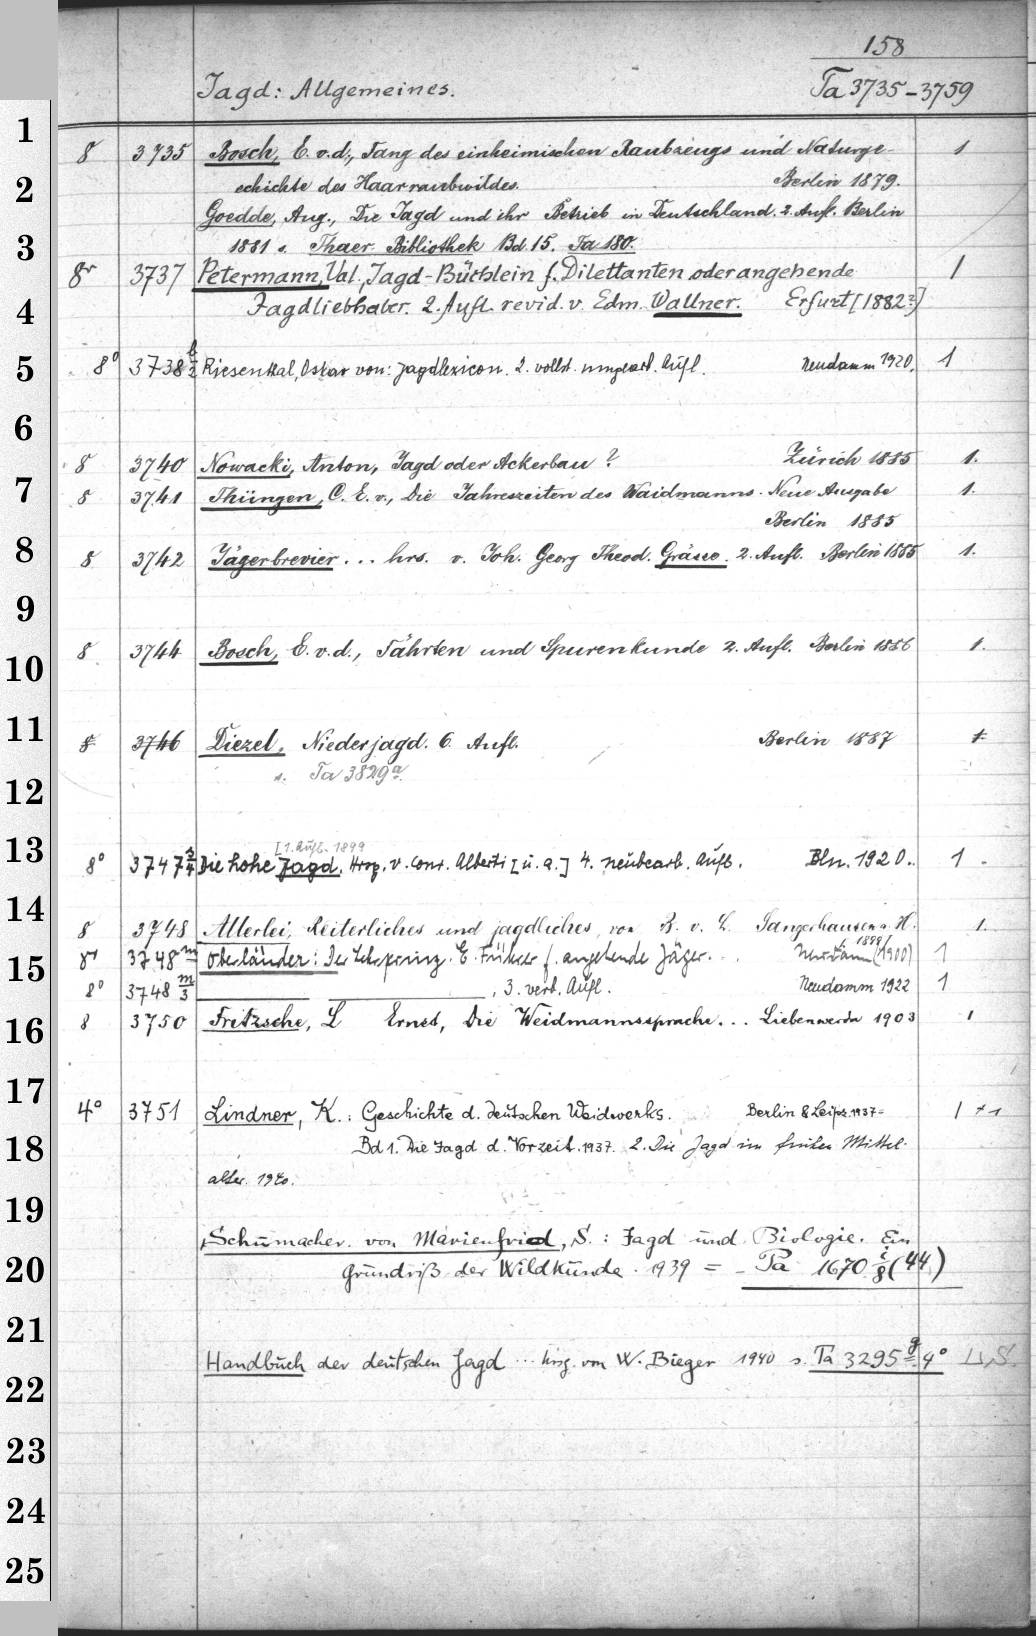 158
Jagd: Allgemeines. Ta 3735-3759
8 3735 Bosch, E. v. d., Fang des einheimischen Raubzeugs und Naturge- 1
schichte des Haarraubwildes. Berlin 1879.
Goedde, Aug., Die Jagd und ihr Betrieb in Deutschland. 2. Aufl. Berlin
1881 s. Thaer Bibliothek Bd. 15. Ta 180.
8r 3737 Petermann, Val., Jagd-Büchlein f. Dilettanten oder angehende 1
Jagdliebhaber. 2. Aufl. revid. v. Edm. Wallner. Erfurt [1882?]
8° 3738 b/2 Riesenthal, Oskar von: Jagdlexicon. 2. vollst. umgearb. Aufl. Neudamm 1920. 1
8 3740 Nowacki, Anton, Jagd oder Ackerbau? Zürich 1885 1.
8 3741 Thüngen, C. E. v., Die Jahreszeiten des Waidmanns. Neue Ausgabe 1.
Berlin 1885
8 3742 Jägerbrevier ... hrs. v. Joh. Georg Theod. Grässe. 2. Aufl. Berlin 1885 1.
8 3744 Bosch, E. v. d., Fährten und Spurenkunde 2. Aufl. Berlin 1886 1.
8 3746 Diezel, Niederjagd. 6 Aufl. Berlin 1887 1
s. Ta 3829a
[1. Aufl. 1899
8° 3747 Die hohe Jagd. Hrsg. v. Conr. Alberti [u. a.] 4. neubearb. Aufl. Bln. 1920.. 1.
8 3748 Allerlei, Reiterliches und jagdliches, von B. v. L. Sangerhausen a. H. 1.
1899
8° 3748 m Oberländer: Der Lehrprinz. E. Führer f. angehende Jäger... Neudamm (1900) 1
8° 3748 m/3 ______ ______, 3. verb. Aufl. Neudamm 1922 1
8 3750 Fritzsche, L Ernst, Die Weidmannssprache... Liebenwerda 1903 1
4° 3751 Lindner, K.: Geschichte d. deutschen Weidwerks. Berlin & Leipz. 1937= 1 + 1
Bd 1. Die Jagd d. Vorzeit. 1937. 2. Die Jagd im frühen Mittel-
alter. 1940.
Schumacher von Marienfried, S.: Jagd und Biologie. Ein
Grundriß der Wildkunde. 1939 = Pa 1670 i/8 (44)
Handbuch der deutschen Jagd ... hrsg. von W. Bieger 1940 s. Ta 3295 g 4° LS.